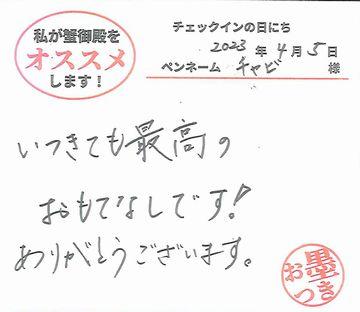 私が蟹御殿を
オススメ
します！
チェックインの日にち
2023年4月5日
ペンネーム チャビ 様
いつきても最高の
おもてなしです！
ありがとうございます。
お墨つき